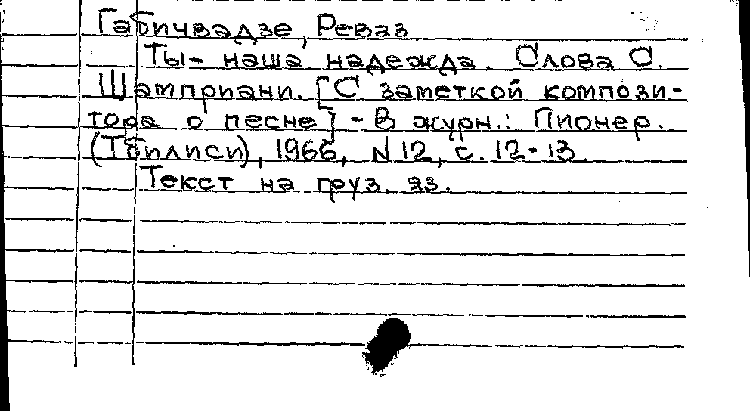 Габичвадзе, Реваз
Ты - наша надежда. Слова С.
Шамприани. [С заметкой компози-
тора о песне] - В журн.: Пионер.
(Тбилиси), 1966, N 12, с. 12-13.
Текст на груз. яз.